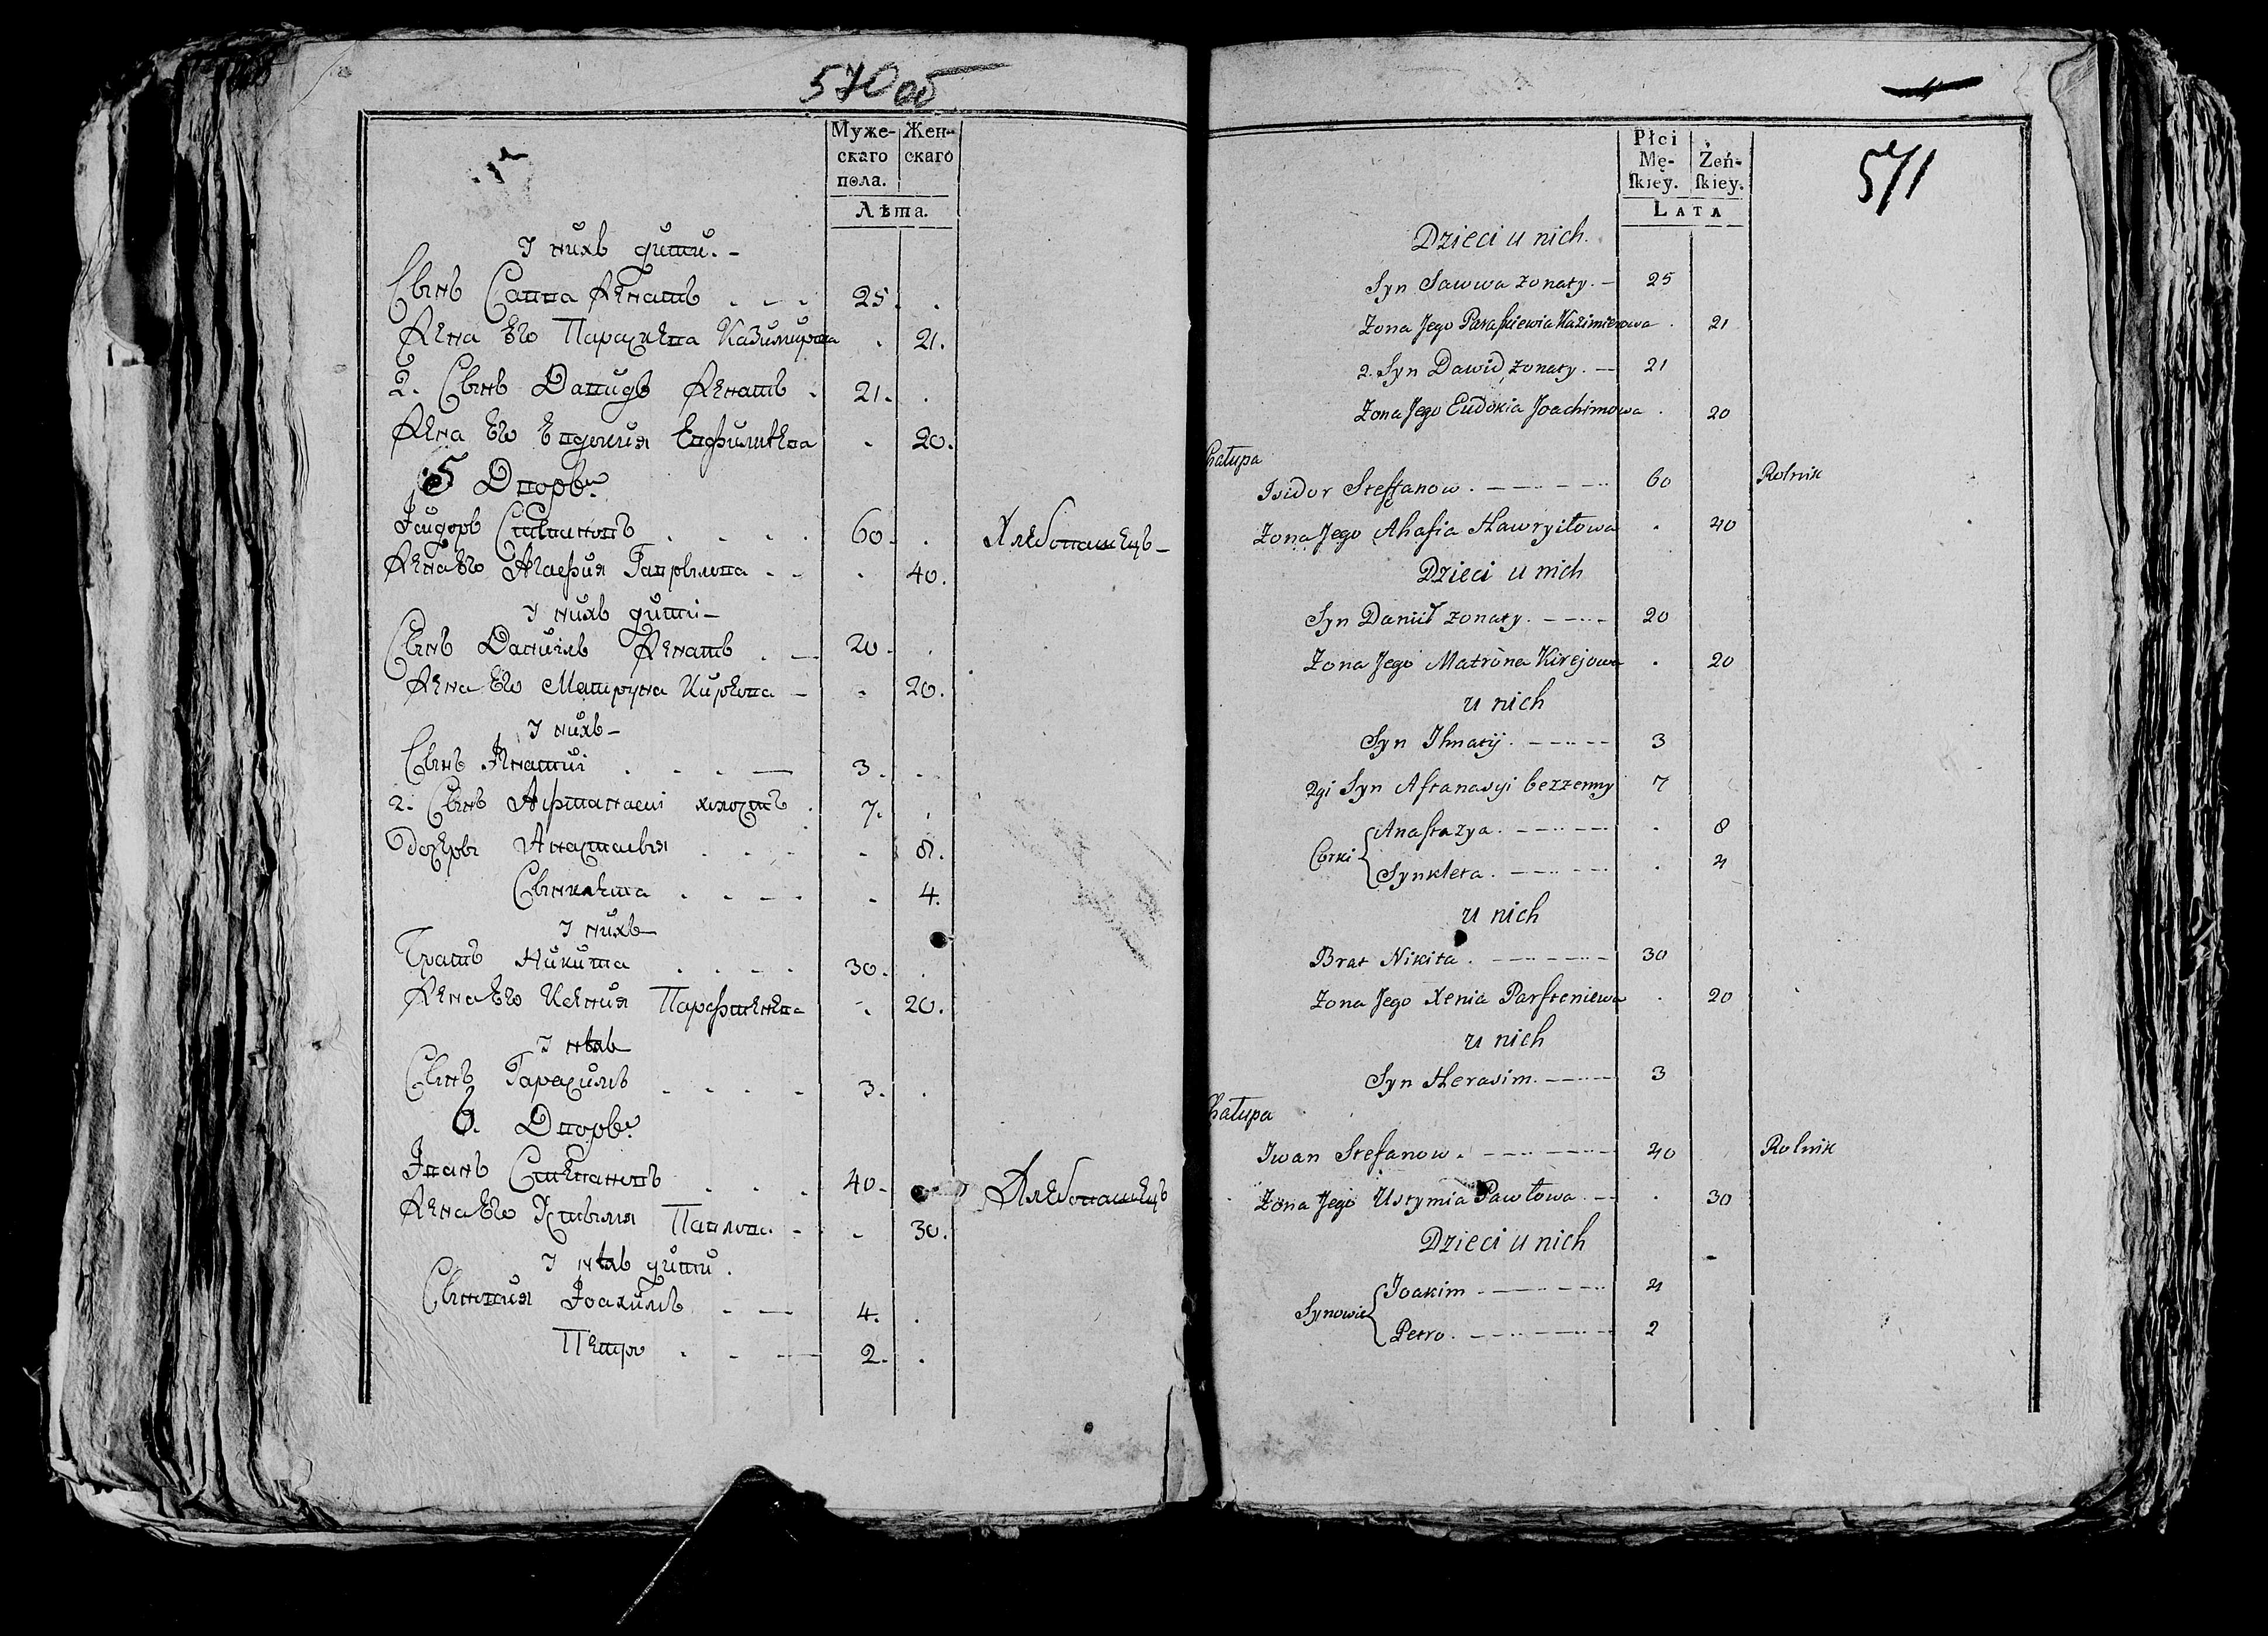 570 об
Муже- Жен-
скаго скаго
пола.
Лѣта.
У нихъ дити. -
Сынъ Савва женатъ 25.
Жена Его Параскева Казимирова 21.
2. Сынъ Давидъ Женатъ 21.
Жена Его Евдокия Евфимиева 20.
5 Дворъ.
Isидоръ Стѣпановъ 60. Хлебопашецъ -
Жена Его Агафия Гаврылова 40.
У нихъ дити -
Сынъ Даниілъ Женатъ 20.
Жена Его Матруна Кирѣева 20.
У нихъ -
Сынъ Игнатиі 3.
2. Сынъ Афтанасиі холостъ 7.
Дочеры Анастасыя 8.
Сынклета 4.
У нихъ
Братъ Никита 30.
Жена Его Ксения Парфтенева 20.
У нѣхъ
Сынъ Гарасимъ 3.
6. Дворъ.
Иванъ Степановъ 40. Хлебопашецъ
Жена Его Устымия Павлова 30.
У нѣхъ дити.
Сыновия Іоахимъ 4.
Петръ 2.
571
Płci
Mę- Żeń-
ſkiey. ſkiey.
LATA
Dzieci u nich.
Syn Sawwa żonaty. 25
Żona Jego Paraſkiewia Kazimierowa 21
2. Syn Dawid żonaty. 21
Żona Jego Eudokia Joachimowa 20
Chałupa
Isidor Steffanow. 60 Rolnik
Żona Jego Ahafia Hawryiłowa 40
Dzieci u nich
Syn Daniił żonaty. 20
Żona Jego Matrona Kirejowa 20
u nich
Syn Ihnatij. 3
2gi Syn Aftanasyi bezżenny 7
Corki Anaſtazya. 8
Synkleta. 4
u nich
Brat Nikita. 30
Żona Jego Xenia Parfteniewa 20
u nich
Syn Herasim. 3
Chałupa
Iwan Stefanow. 40 Rolnik
Żona Jego Ustymia Pawłowa. 30
Dzieci u nich
Synowie Joakim 4
Petro. 2